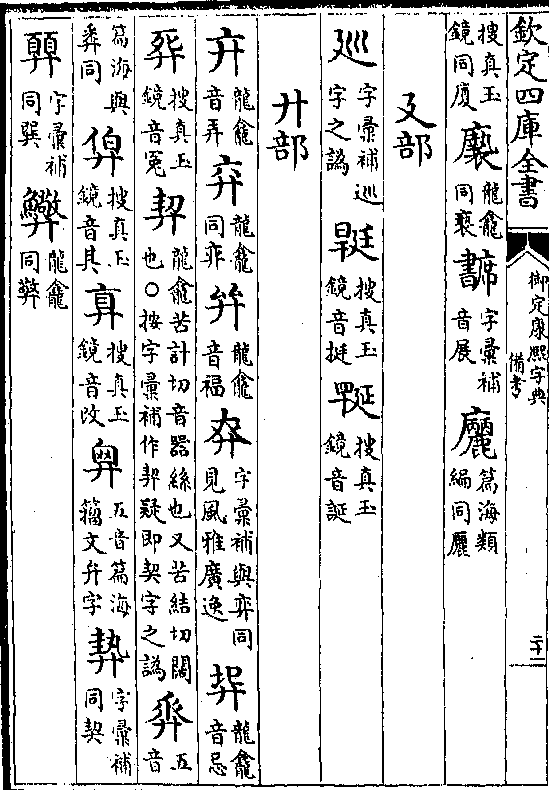 欽定四庫全書
御定康熙字典
備考
二十一
搜真玉鏡同廈 龍龕同褻 字彙補音展 篇海類編同麗
廴部
字彙補巡字之譌 搜真玉鏡音挺 搜真玉鏡音誕
廾部
龍龕音弄 龍龕同弈 龍龕音福 字彙補與弈同見風雅廣逸 龍龕音忌
搜真玉鏡音冤 龍龕苦計切音器絲也又苦結切闊也○按字彙補作契疑即契字之譌 五音
篇海與彜同 搜真玉鏡音其 搜真玉鏡音攺 五音篇海籀文弁字 字彙補同契
字彙補同巽 龍龕同弊